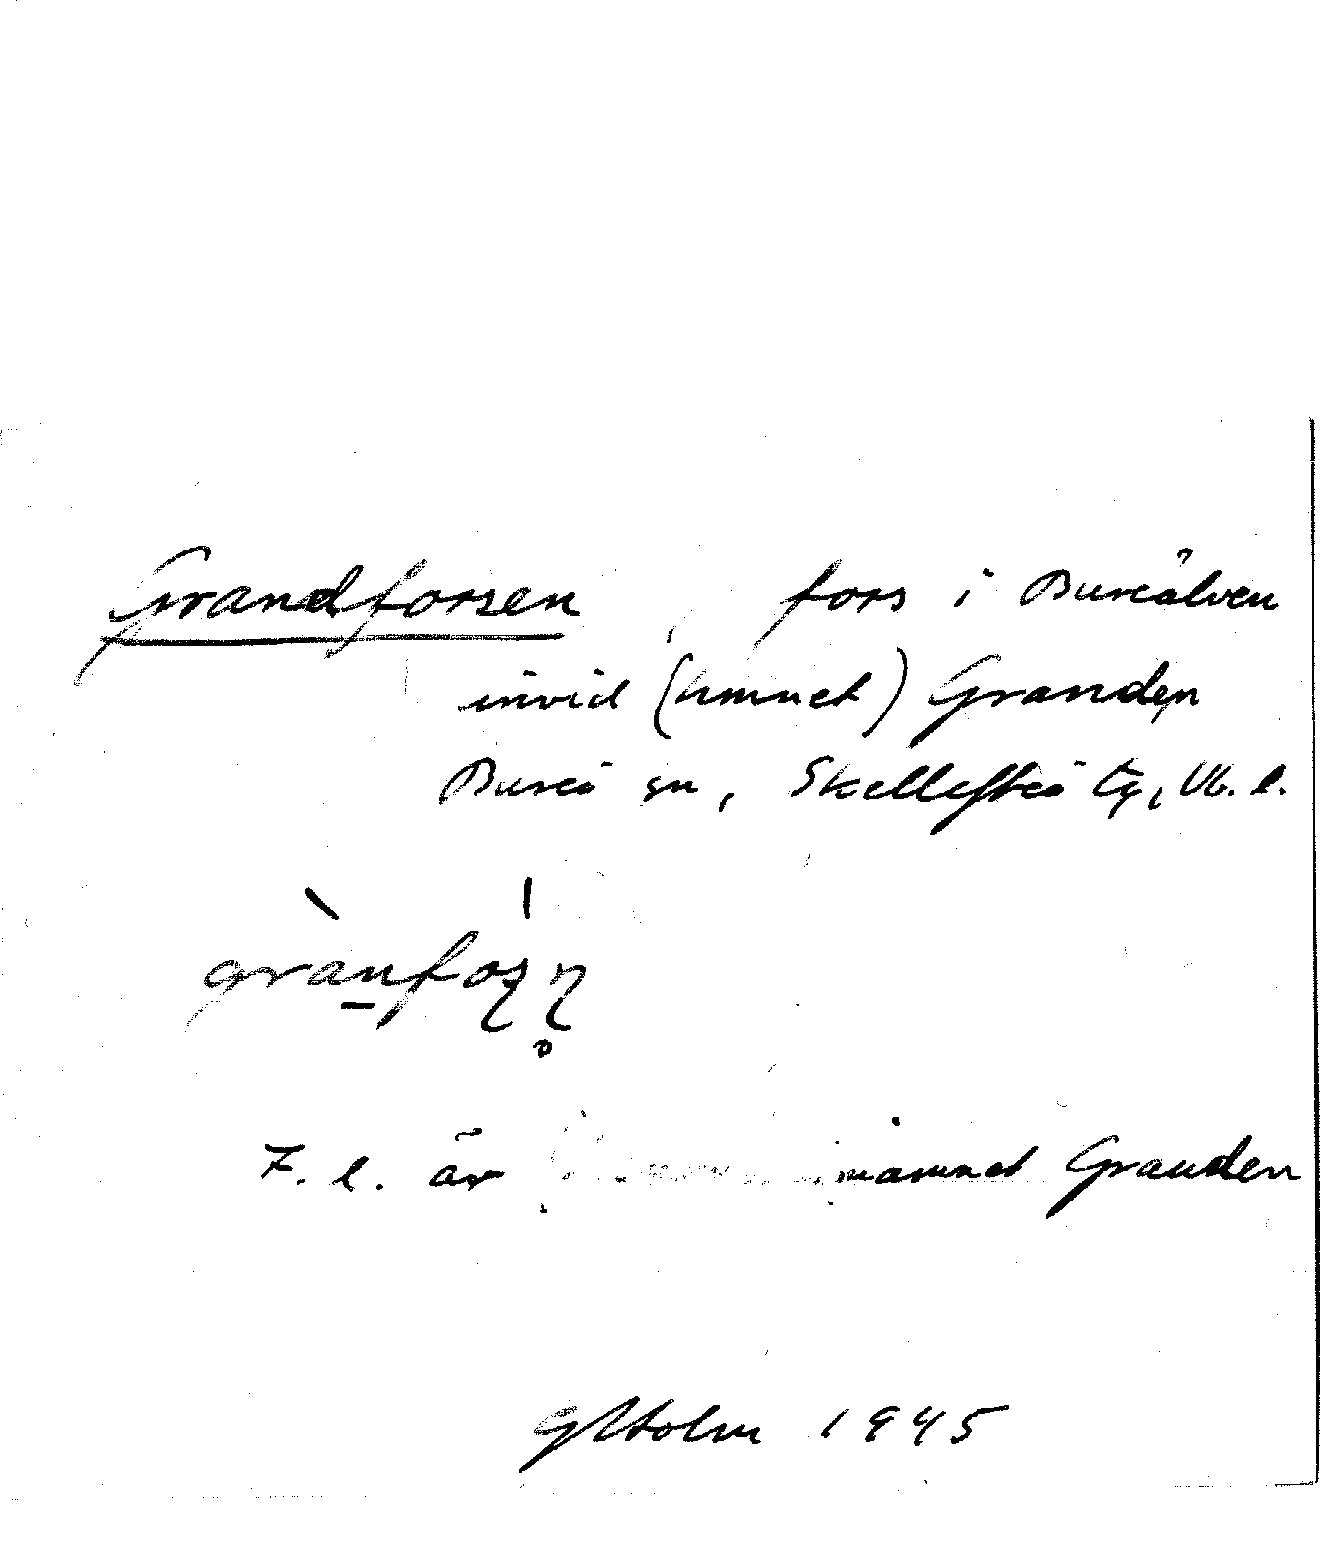 Grandforsen, fors i Bureälven
invid (hmnet) Granden
Bureå sn, Skellefteå tg, Vb. l.
grànfoʂṇ̥
F. l. är namnet Granden
G Holm 1945